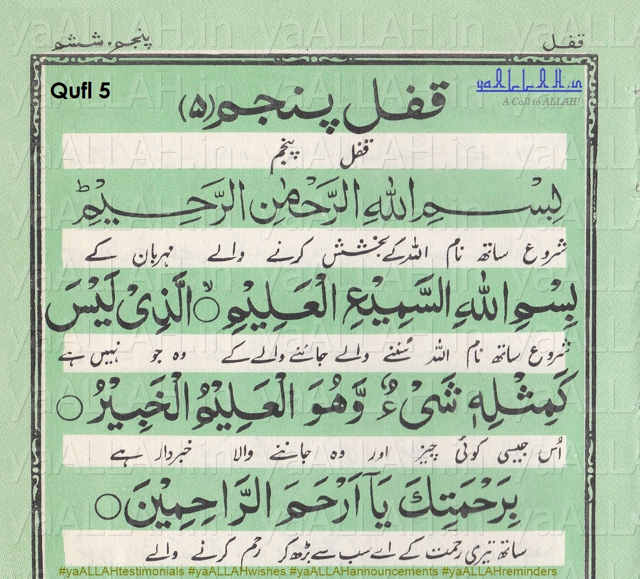 قفل
پنجم، ششم
Qufl 5
yaALLAH.in
A Call to ALLAH!
قفل پنجم (۵)
قفل پنجم
بِسْمِ اللهِ الرَّحْمٰنِ الرَّحِيْمِ ط
شروع ساتھ نام اللہ کے بخشش کرنے والے مہربان کے
بِسْمِ اللهِ السَّمِيْعِ الْعَلِيْمِ ○ۙ الَّذِىْ لَيْسَ
شروع ساتھ نام اللہ سُننے والے جاننے والے کے وہ جو نہیں ہے
كَمِثْلِهٖ شَىْءٌ وَّهُوَ الْعَلِيْمُ الْخَبِيْرُ ○
اُس جیسی کوئی چیز اور وہ جاننے والا خبردار ہے
بِرَحْمَتِكَ يَآ اَرْحَمَ الرَّاحِمِيْنَ ○
ساتھ تیری رحمت کے اے سب سے بڑھ کر رحم کرنے والے
#yaALLAHtestimonials #yaALLAHwishes #yaALLAHannouncements #yaALLAHreminders